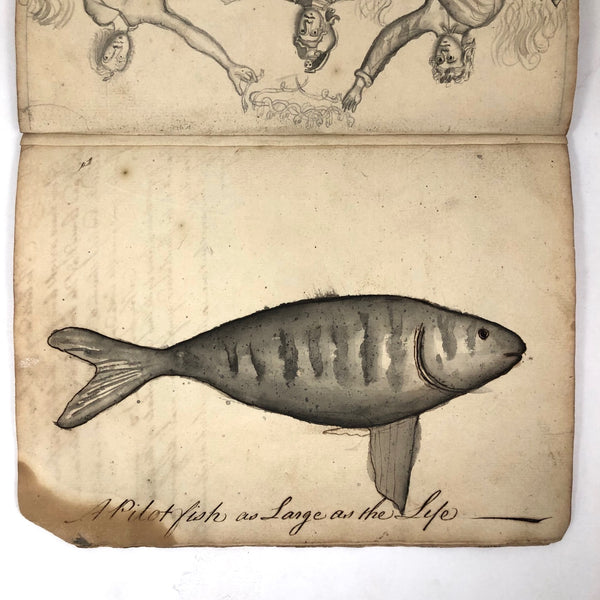 A Pilot fish as Large as the Life